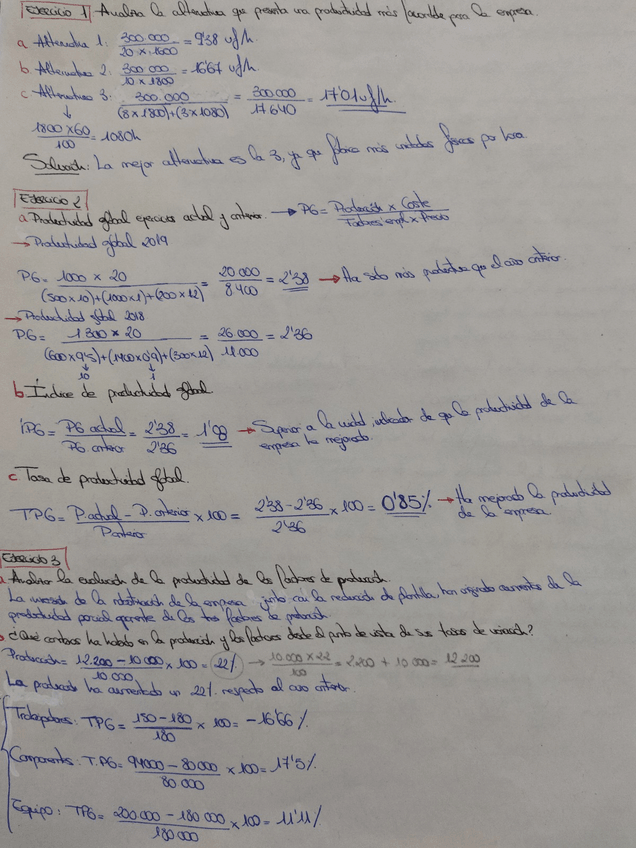 Ejercicio 1 Analiza la alternativa que presenta una productividad más favorable para la empresa.
a Alternativa 1: 300.000 / 20 x 1600 = 9'38 uf/h.
b Alternativa 2: 300 000 / 10 x 1800 = 16'67 uf/h.
c Alternativa 3: 300.000 / (8 x 1800) + (3 x 1080) = 300.000 / 17 640 = 17'01 uf/h.
1800 x 60 / 100 = 1080h
Solución: La mejor alternativa es la 3, ya que fabrica más unidades físicas por hora.
Ejercicio 2
a Productividad global ejercicio actual y anterior. → PG = Producción x Coste / Factores empl. x Precio
→ Productividad global 2019
PG = 1000 x 20 / (500 x 10) + (1000 x 1) + (200 x 12) = 20 000 / 8 400 = 2'38 → Ha sido más productiva que el año anterior.
→ Productividad global 2018
PG = 1 300 x 20 / (600 x 9'5) + (1400 x 0'9) + (300 x 12) = 26.000 / 11 000 = 2'36
10 1
b Índice de productividad global
IPG = PG actual / PG anterior = 2'38 / 2'36 = 1'08 → Superior a la unidad, indicador de que la productividad de la
empresa ha mejorado.
c Tasa de productividad global.
TPG = P. actual - P. anterior / P. anterior x 100 = 2'38 - 2'36 / 2'36 x 100 = 0'85% → Ha mejorado la productividad
de la empresa
Ejercicio 3
a Analizar la evolución de la productividad de los factores de producción.
La inversión de la robotización de la empresa junto con la reducción de plantilla, han originado aumentos de la
productividad parcial aparente de los tres factores de producción.
b ¿Qué cambios ha habido en la producción y los factores desde el punto de vista de sus tasas de variación?
Producción = 12.200 - 10 000 / 10 000 x 100 = 22% → 10 000 x 22 / 100 = 2200 + 10 000 = 12 200
La producción ha aumentado un 22% respecto al año anterior.
Trabajadores: TPG = 150 - 180 / 180 x 100 = - 16'66 %.
Componentes: TPG = 94000 - 80 000 / 80 000 x 100 = 17'5 %.
Equipo: TPG = 200 000 - 180 000 / 180 000 x 100 = 11'11 %